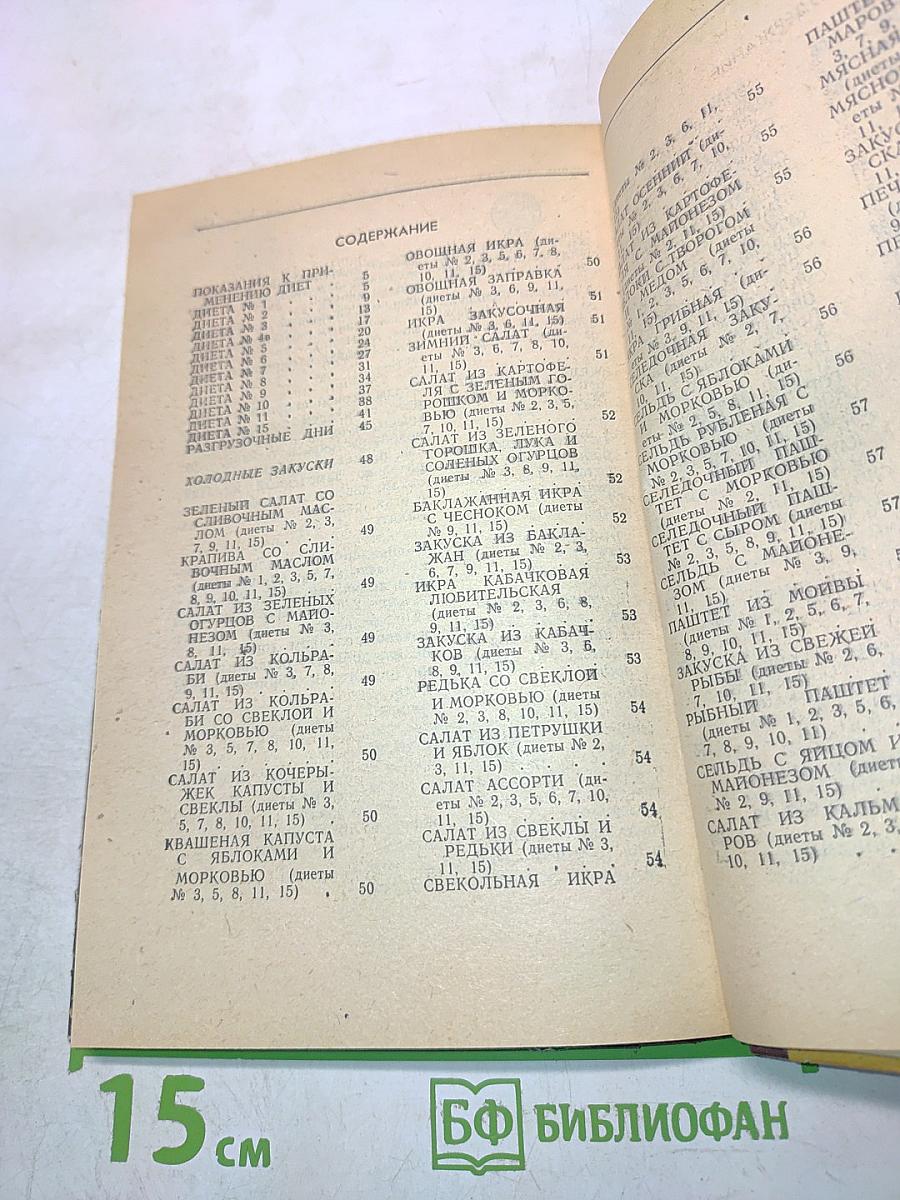 СОДЕРЖАНИЕ
ПОКАЗАНИЯ К ПРИ-
МЕНЕНИЮ ДИЕТ . 5
ДИЕТА № 1 . . . . 5
ДИЕТА № 2 . . . . 9
ДИЕТА № 3 . . . . 13
ДИЕТА № 4в . . . . 17
ДИЕТА № 5 . . . . 20
ДИЕТА № 6 . . . . 24
ДИЕТА № 7 . . . . 27
ДИЕТА № 8 . . . . 31
ДИЕТА № 9 . . . . 34
ДИЕТА № 10 . . . . 37
ДИЕТА № 11 . . . . 38
ДИЕТА № 15 . . . . 41
РАЗГРУЗОЧНЫЕ ДНИ 45
ХОЛОДНЫЕ ЗАКУСКИ 48
ЗЕЛЕНЫЙ САЛАТ СО
СЛИВОЧНЫМ МАС-
ЛОМ (диеты № 2, 3,
7, 9, 11, 15) . . . 49
КРАПИВА СО СЛИ-
ВОЧНЫМ МАСЛОМ
(диеты № 1, 2, 3, 5, 7,
8, 9, 10, 11, 15) . . 49
САЛАТ ИЗ ЗЕЛЕНЫХ
ОГУРЦОВ С МАЙО-
НЕЗОМ (диеты № 3,
8, 11, 15) . . . 49
САЛАТ ИЗ КОЛЬРА-
БИ (диеты № 3, 7, 8,
9, 11, 15) . . . 49
САЛАТ ИЗ КОЛЬРА-
БИ СО СВЕКЛОЙ И
МОРКОВЬЮ (диеты
№ 3, 5, 7, 8, 10, 11,
15) . . . . . 50
САЛАТ ИЗ КОЧЕРЫ-
ЖЕК КАПУСТЫ И
СВЕКЛЫ (диеты № 3,
5, 7, 8, 10, 11, 15) . 50
КВАШЕНАЯ КАПУСТА
С ЯБЛОКАМИ И
МОРКОВЬЮ (диеты
№ 3, 5, 8, 11, 15) . 50
ОВОЩНАЯ ИКРА (ди-
еты № 2, 3, 5, 6, 7, 8,
10, 11, 15) . . . 50
ОВОЩНАЯ ЗАПРАВКА
(диеты № 3, 6, 9, 11,
15) . . . . . 51
ИКРА ЗАКУСОЧНАЯ
(диеты № 3, 6, 11, 15) 51
ЗИМНИЙ САЛАТ (ди-
еты № 3, 6, 7, 8, 10,
11, 15) . . . . 51
САЛАТ ИЗ КАРТОФЕ-
ЛЯ С ЗЕЛЕНЫМ ГО-
РОШКОМ И МОРКО-
ВЬЮ (диеты № 2, 3, 5,
7, 10, 11, 15) . . . 52
САЛАТ ИЗ ЗЕЛЕНОГО
ГОРОШКА, ЛУКА И
СОЛЕНЫХ ОГУРЦОВ
(диеты № 3, 8, 9, 11,
15) . . . . . 52
БАКЛАЖАННАЯ ИКРА
С ЧЕСНОКОМ (диеты
№ 9, 11, 15) . . . 52
ЗАКУСКА ИЗ БАКЛА-
ЖАН (диеты № 2, 3,
6, 7, 9, 11, 15) . . 53
ИКРА КАБАЧКОВАЯ
ЛЮБИТЕЛЬСКАЯ
(диеты № 2, 3, 6, 8,
9, 11, 15) . . . 53
ЗАКУСКА ИЗ КАБАЧ-
КОВ (диеты № 3, 6,
8, 9, 11, 15) . . . 53
РЕДЬКА СО СВЕКЛОЙ
И МОРКОВЬЮ (диеты
№ 2, 3, 8, 10, 11, 15) 54
САЛАТ ИЗ ПЕТРУШКИ
И ЯБЛОК (диеты № 2,
3, 11, 15) . . . . 54
САЛАТ АССОРТИ (ди-
еты № 2, 3, 5, 6, 7, 10,
11, 15) . . . . 54
САЛАТ ИЗ СВЕКЛЫ И
РЕДЬКИ (диеты № 3,
11, 15) . . . . 54
СВЕКОЛЬНАЯ ИКРА
№ 2, 3, 6, 11, 55
ОСЕННИЙ (ди-
№ 2, 3, 6, 7, 10,
15) 55
ИЗ КАРТОФЕ-
С МАЙОНЕЗОМ
№ 2, 11, 15) . 55
С ТВОРОГОМ
МЕДОМ (диеты
1, 2, 3, 5, 6, 7, 10,
15) 56
ГРИБНАЯ (ди-
№ 3, 9, 11, 15) . 56
ЗАКУ-
СКА (диеты № 2, 7,
10, 11, 15) . . 56
СЕЛЬДЬ С ЯБЛОКАМИ
И МОРКОВЬЮ (ди-
еты № 2, 5, 8, 11, 15) 56
СЕЛЬДЬ РУБЛЕНАЯ С
МОРКОВЬЮ (диеты
№ 2, 3, 5, 7, 10, 11, 15) 57
СЕЛЕДОЧНЫЙ ПАШ-
ТЕТ С МОРКОВЬЮ
(диеты № 2, 11, 15) 57
СЕЛЕДОЧНЫЙ ПАШ-
ТЕТ С СЫРОМ (диеты
№ 2, 3, 5, 8, 9, 11, 15) 57
СЕЛЬДЬ С МАЙОНЕ-
ЗОМ (диеты № 3, 9,
11, 15)
ПАШТЕТ ИЗ МОЙВЫ
(диеты № 1, 2, 5, 6, 7,
8, 9, 10, 11, 15) .
ЗАКУСКА ИЗ СВЕЖЕЙ
РЫБЫ (диеты № 2, 6,
7, 10, 11, 15) .
РЫБНЫЙ ПАШТЕТ
(диеты № 1, 2, 3, 5, 6,
7, 8, 9, 10, 11) .
СЕЛЬДЬ С ЯЙЦОМ И
МАЙОНЕЗОМ (диеты
№ 2, 9, 11, 15) .
САЛАТ ИЗ КАЛЬМ
РОВ (диеты № 2, 3,
10, 11, 15) . .
ПАШТЕ
МАРОВ
3, 7, 9,
МЯСНАЯ
(диеты
МЯСНО
еты №
11,
ЗАКУС
СКА
11,
ПЕЧ
15 см
БФ БИБЛИОФАН